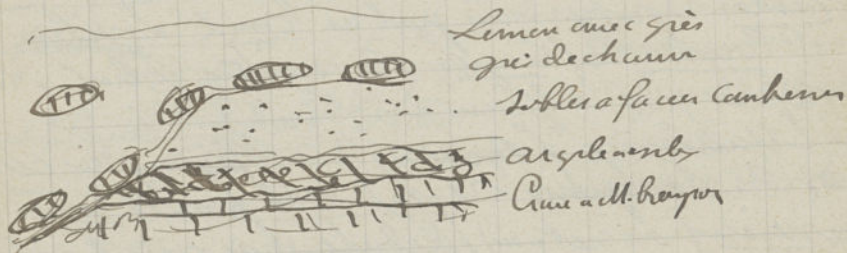 Limon avec grès
grès de chaux
Sables a facies
argile a silex
Craie a M. breviporus